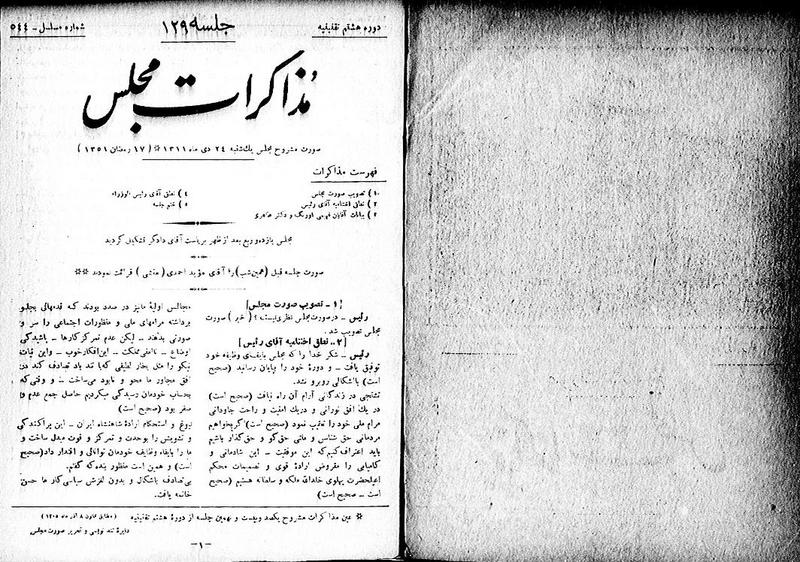 دوره هشتم تقنینیه
جلسه ۱۲۹
شماره مسلسل - ۵۴۴
مذاکرات مجلس
صورت مشروح مجلس یکشنبه ۲۴ دی ماه ۱۳۱۱ * (۱۷ رمضان ۱۳۵۱)
فهرست مذاکرات
۱) تصویب صورت مجلس
۲) نطق اختتامیه آقای رئیس
۳) بیانات آقایان فهیمی اورنگ و دکتر طاهری
۴) نطق آقای رئیس الوزراء
۵) ختم جلسه
مجلس یازده و ربع بعد از ظهر بریاست آقای دادگر تشکیل گردید
صورت جلسه قبل (همین شب) را آقای مؤید احمدی (منشی) قرائت نمودند **
[۱ - تصویب صورت مجلس]
رئیس - در صورت مجلس نظری نیست؟ (خیر) صورت
مجلس تصویب شد.
[۲ - نطق اختتامیه آقای رئیس]
رئیس - شکر خدا را که مجلس بایفای وظیفه خود
توفیق یافت - و دورهٔ خود را پایان رسانید (صحیح
است) باشکالی روبرو نشد.
تشنجی در زندگانی آرام آن راه نیافت (صحیح است)
در یک افق نورانی و در یک امنیت و راحت جاودانی
مرام ملی خود را تعقیب نمود (صحیح است) گر بخواهیم
مردمانی حق شناس و ملتی حق گو و حق گذار باشیم
باید اعتراف کنیم که این موفقیت - این شادمانی و
کامیابی را مقروض ارادهٔ قوی و تصمیمات محکم
اعلیحضرت پهلوی خلدالله ملکه و سلطانه هستیم (صحیح
است - صحیح است)
مجالس اولیهٔ ما نیز در صدد بودند که قدمهائی بجلو
برداشته مرامهای ملی و منظورات اجتماعی را سر و
صورتی بدهند - لیکن عدم تمرکز کارها - پاشیدگی
اوضاع - ناامنی مملکت - این افکار خوب - و این نیات
نیکو را مثل بخار لطیفی که با تند باد تصادف کند در
افق مجاور ما محو و نابود می ساخت - و وقتی که
بحساب خودمان رسیدگی میکردیم حاصل جمع عدم و
صفر بود (صحیح است)
نبوغ و استحکام ارادهٔ شاهنشاه ایران - این پراکندگی
و تشویش را بوحدت و تمرکز و قوت مبدل ساخت و
ما را بایفاء وظایف خودمان توانائی و اقتدار داد (صحیح
است) و همین است منظور بنده که گفتم.
بی تصادف باشکال و بدون لغزش سیاسی کار ما حسن
خاتمه یافت.
* عین مذاکرات مشروح یکصد و بیست و نهمین جلسه از دورهٔ هشتم تقنینیه (مطابق قانون ۸ آذر ماه ۱۳۰۵)
دایرهٔ تند نویسی و تحریر صورت مجلس
-۱-